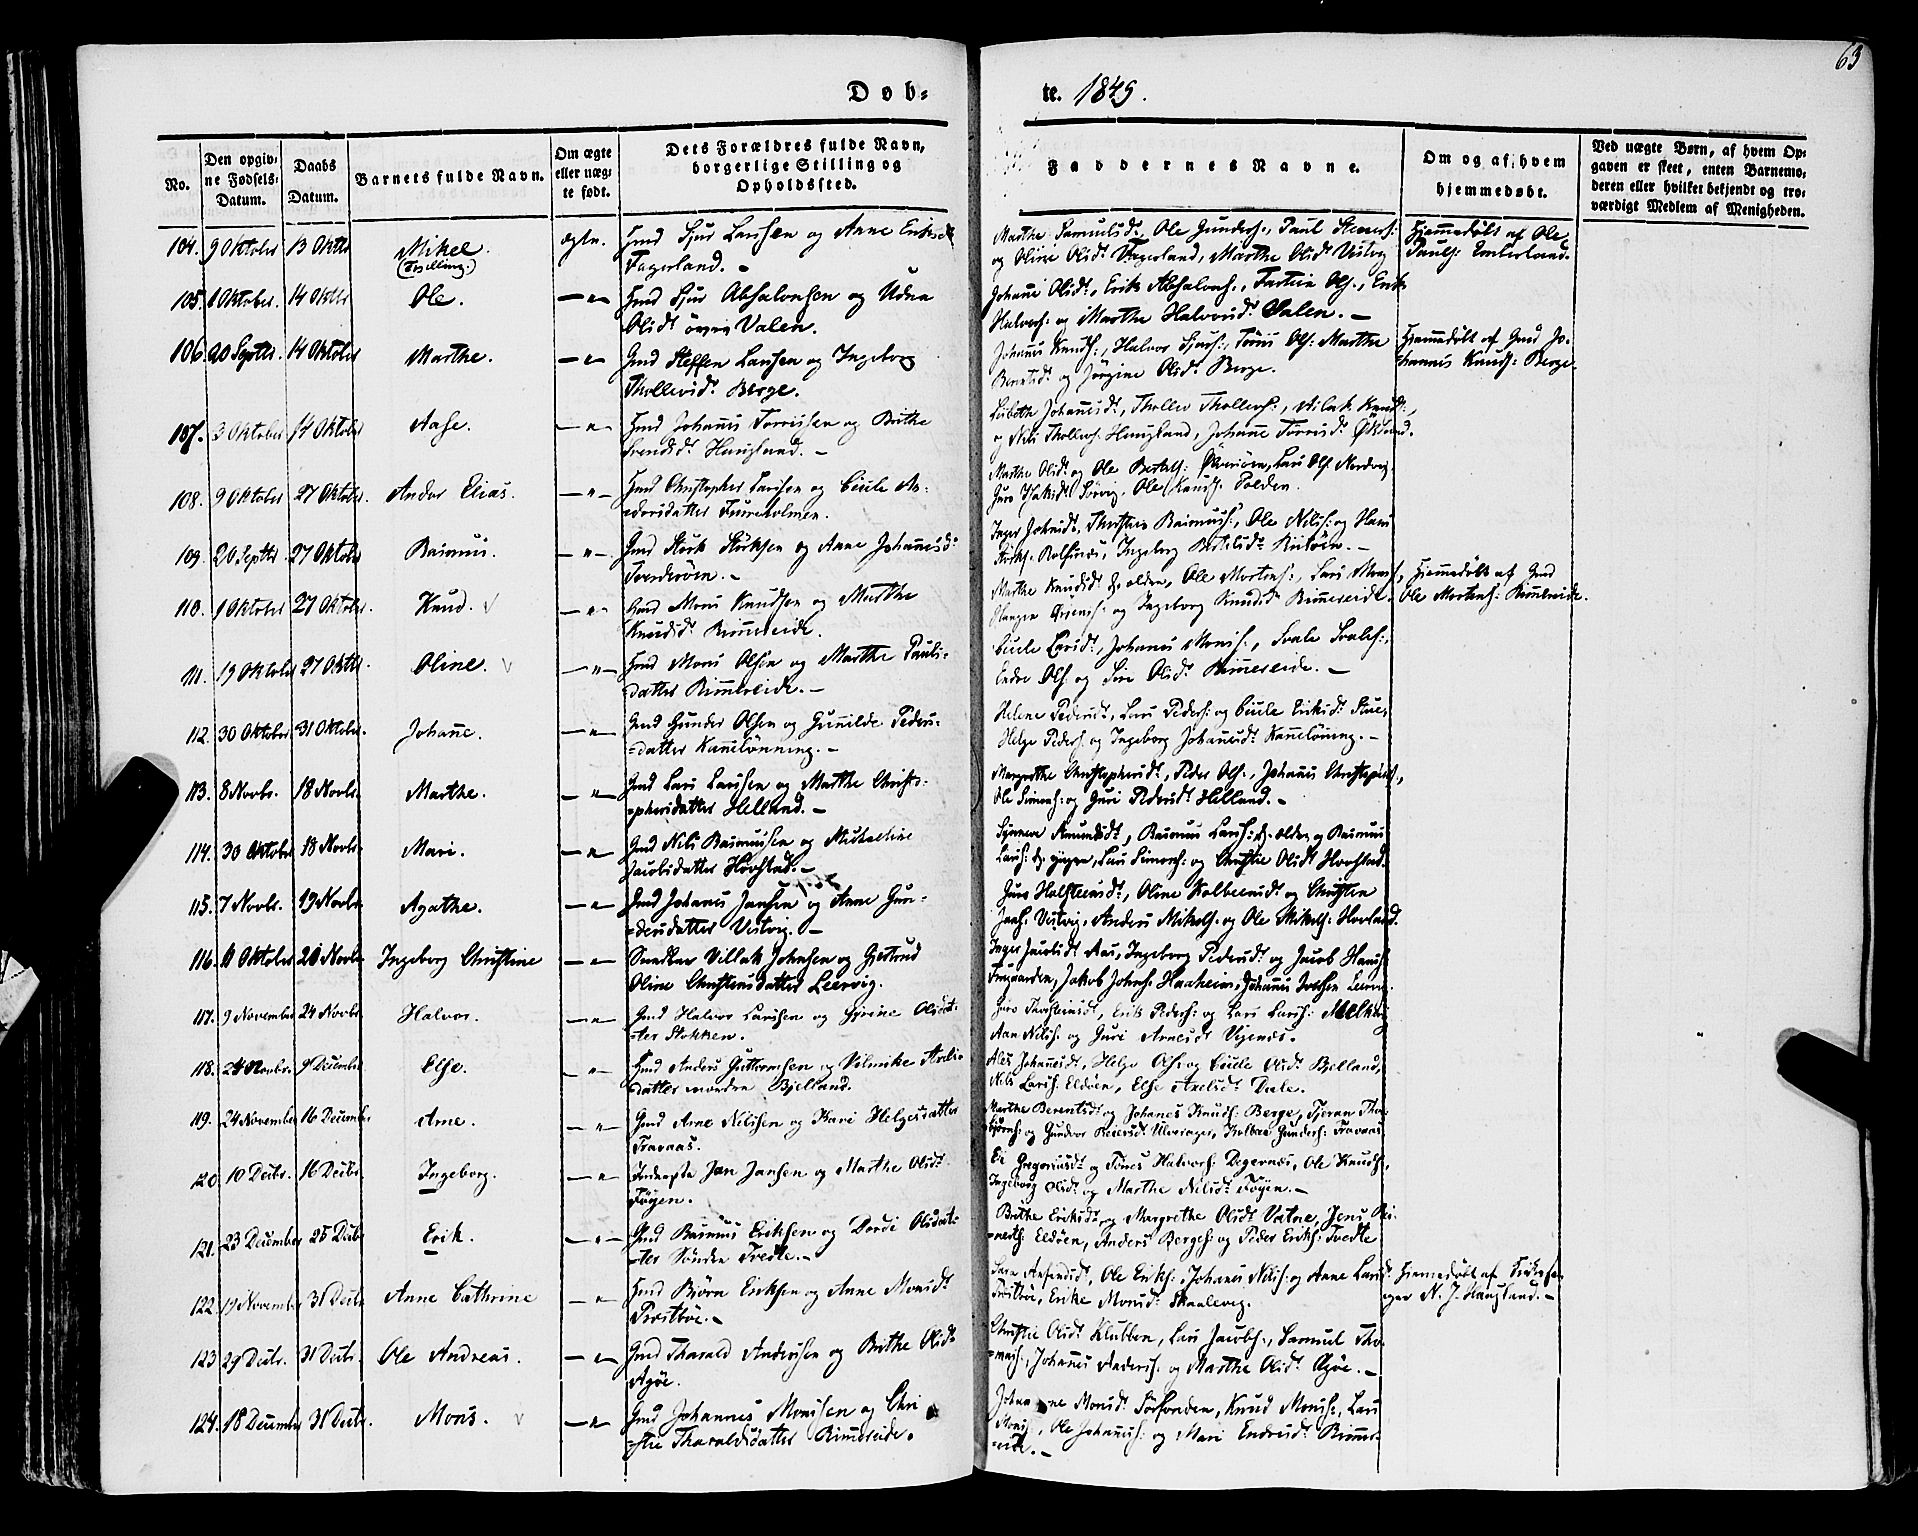 63
Døb-
te. 1849.
No.
Den opgiv-
ne Fødsels-
Datum.
Daabs
Datum.
Barnets fulde Navn.
Om ægte
eller uæg-
te født.
Dets Forældres fulde Navn,
borgerlige Stilling og
Opholdssted.
Faddernes Navne.
Om og af hvem
hjemmedøbt.
Ved uægte Børn, af hvem Op-
gaven er skeet, enten Barnemo-
deren eller hvilket bekjendt og tro-
værdigt Medlem af Menigheden.
104. 9 Oktober 13 Oktbr Mikel. ægte. Gmd Sjur Larssen og Anne Eriksd
(Tvilling.) Fagerland. -
Marthe Samuelsdt, Ole Gunders:, Paul
og Oline Olsdt Fagerland, Marthe Olsdt Vestvig
Hjemmedøbt af Ole
Pauls:
105. 1 Oktober. 14 Oktbr Ole. -"- Gmd Sjur Absalonsen og Udna
Olsdt Valen.
Johanne Olsdt, Erik Absalons:, Ols:, Erik
Halvors: og Marthe Halvorsdt Valen. -
106 20 Septbr. 14 Oktober Marthe. -"- Gmd Steffen Larssen og Ingeborg
Thollevsdt Berge.
Johannes Knuds:, Halvor Sjurs:, Tønes Ols: Marthe
Berentsdt og Jørgine Olsdt Berge.
Hjemmedøbt af Gmd Jo-
hannes Knuds: Berge.
107. 3 Oktober 14 Oktober Aase. -"- Gmd Johannes Torrissen og Brithe
Svendsdt Haugland. -
Lisbeth Johannesdt, Thollev Thollevs:, Aslak Knuds:,
og Nils Thollevs: Haugland, Johanne Torrisdt
108. 9 Oktober 27 Oktober. Andor Elias. -"- Gmd Christopher Larssen og Cicile An-
dorsdatter
Marthe Olsdt og Ole Bertels: Lars Ols: Nordvig,
Guro Ole Knuds:
109. 20 Septbr 27 Oktober Rasmus. -"- Gmd Størk Størksen og Anne Johannesdt
Inger Johnsdt, Thorsten Rasmus:, Ole Nils: og Hans
Størks: Rolfsnæs, Ingeborg Bertelsdt -
110. 1 Oktober 27 Oktober. Knud. -"- Gmd Mons Knudsen og Marthe
Knudsdt Rimmereide.
Marthe Knudsdt d. ældre, Ole Mortens:, Lars Mons:,
og Ingeborg Knudsdt Rimmereide.
Hjemmedøbt af Gmd
Ole Mortens: Rimmereide.
111. 19 Oktober 27 Oktbr. Oline. -"- Gmd Mons Olsen og Marthe Pauls-
datter Rimmereide. -
Cicile Larsdt, Johannes Mons:, Svale Svales:,
Endre Ols: og Siri Olsdt Rimmereide. -
112. 30 Oktober 31 Oktober. Johanne. -"- Gmd Gunder Olsen og Gunnilde Peders-
=datter Kannelønning. -
Helene Pedersdt, Lars Peders: og Cicile Eriksdt
Helge Peders: og Ingeborg Johannesdt Kannelønning. -
113. 8 Novbr. 18 Novbr. Marthe. -"- Gmd Lars Larssen og Marthe Christo-
=phersdatter Helland. -
Margrethe Christophersdt, Peder Ols:, Johannes Christophers:,
Ole Simons: og Guri Pedersdt Helland. -
114. 30 Oktober 18 Novbr. Mari. -"- Gmd Nils Rasmussen og Michaeline
Jacobsdatter Hovstad. -
Synneve Amundsdt, Rasmus Lars: d. ældre og Rasmus
Lars: d. yngre, Lars Simons: og Christie Olsdt Hovstad.
115. 7 Novbr. 19 Novbr. Agathe. -"- Gmd Johannes Jansen og Anne Gun-
=dersdatter Vestvig. -
Guro Halsteensdt, Oline Kolbeensdt og Christen
Jans: Vestvig, Anders Mikels: og Ole Mikels: Hovland.
116. 11 Oktober 21 Novbr Ingeborg Christine -"- Villak Johnsen og Gjertrud
Oline Christensdatter Leervig.
Inger Jacobsdt Aas, Ingeborg Pedersdt og Jacob Hans:
Jakob Johns: Haaheim, Johannes
117. 9 November 24 Novbr. Halvor. -"- Gmd Halvor Larssen og Gjørine Olsdat-
=ter Stokken.
Guro Thorsteinsdt, Erik Peders: og Lars Lars:
Aan Nils: og Guri Arnesdt Vigenæs.
118. 24 Novbr. 9 December Else. -"- Gmd Anders Guttormsen og Axels-
datter nordre Bjelland.
Johannesdt, Helge Ols: og Cicile Olsdt Bjelland,
Nils Lars: Eldøen, Else Axelsdt Dale.
119. 24 November 16 December Arne. -"- Gmd Arne Nilssen og Kari Helgesdatter
Travaas.
Marthe Berentsdt og Johannes Knuds: Berge, Tjeran Thor-
bjørns: og Gundvor Reiersdt Ulverager, Kolben Gunders: Travaas.
120 10 Decbr. 16 Decbr. Ingeborg. -"- Inderste Jan Jansen og Marthe Olsdt
Føyen.
Gregoriusdt og Tønes Halvors: Degernæs, Ole Knuds:,
Ingeborg Olsdt og Marthe Nilsdt Føyen. -
121. 23 December 25 Decbr Erik. -"- Gmd Rasmus Eriksen og Dorde Olsdat-
=ter Søndre Tvedte. -
Brithe Eriksdt og Margrethe Olsdt Vatne, Jens
Eldøen, Anders Berges: og Peder Eriks: Tvedte
122. 19 November 31 Decbr. Anne Cathrine -"- Gmd Bjørn Eriksen og Anne Monsdt
Prestbøe. -
Ole Eriks:, Johannes Nils: og Anne Larsdt
Prestbøe, Erike Monsdt Skaalevig.
Hjemmedøbt af
N. J. Haugland. -
123 29 Decbr. 31 Decbr. Ole Andreas. -"- Gmd Tharald Anderssen og Brithe Olsdt
Agøe.
Christie Olsdt Klubben, Lars Jacobs:, Samuel Tho-
=mas:, Johannes Anders: og Marthe Olsdt Agøe. -
124. 18 December 31 Decbr. Mons. -"- Gmd Johannes Monssen og Chri
=stie Tharaldsdatter Rimmereide.
Johanne Monsdt Knud Mons:, Lars
Mons:, Ole Johannes: og Mari Endresdt Rimme-
=reide. -